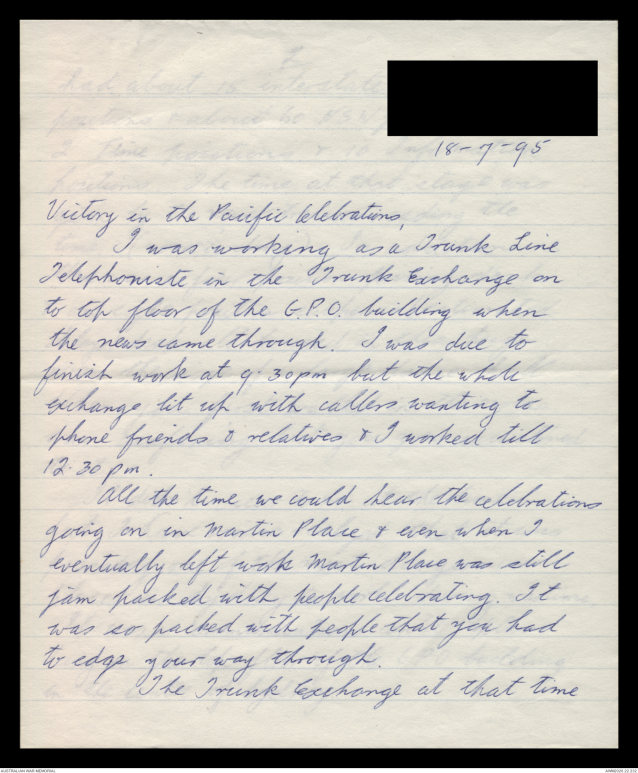 18-7-95
Victory in the Pacific Celebrations,
I was working as a Trunk Line
Telephoniste in the Trunk Exchange on
to top floor of the G.P.O. building when
the news came through. I was due to
finish work at 9.30pm but the whole
exchange lit up with callers wanting to
phone friends & relatives & I worked till
12.30pm.
All the time we could hear the celebrations
going on in Martin Place & even when I
eventually left work Martin Place was still
jam packed with people celebrating. It
was so packed with people that you had
to edge your way through.
The Trunk Exchange at that time
AUSTRALIAN WAR MEMORIAL